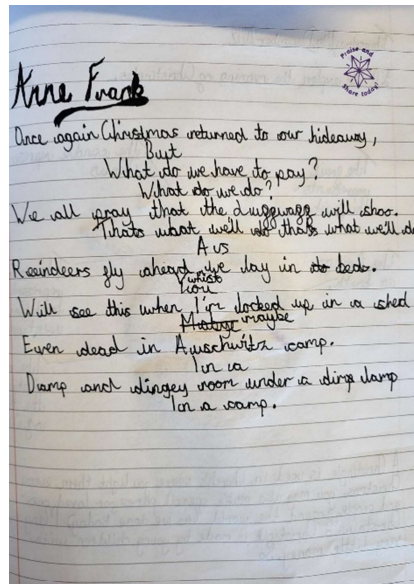 Praise and
Share today!
Anne Frank
Once again Christmas returned to our hideaway,
But
What do we have to pay?
What do we do?
We all pray that the will shoo.
Thats what we'll do thats what we'll do
A us
Reeindeers fly ahead we lay in bed.
whist
You
Will see this when I'm locked up in a shed
maybe
Even dead in Auschwitz camp.
In a
Damp and dingey room under a dim lamp
In a camp.